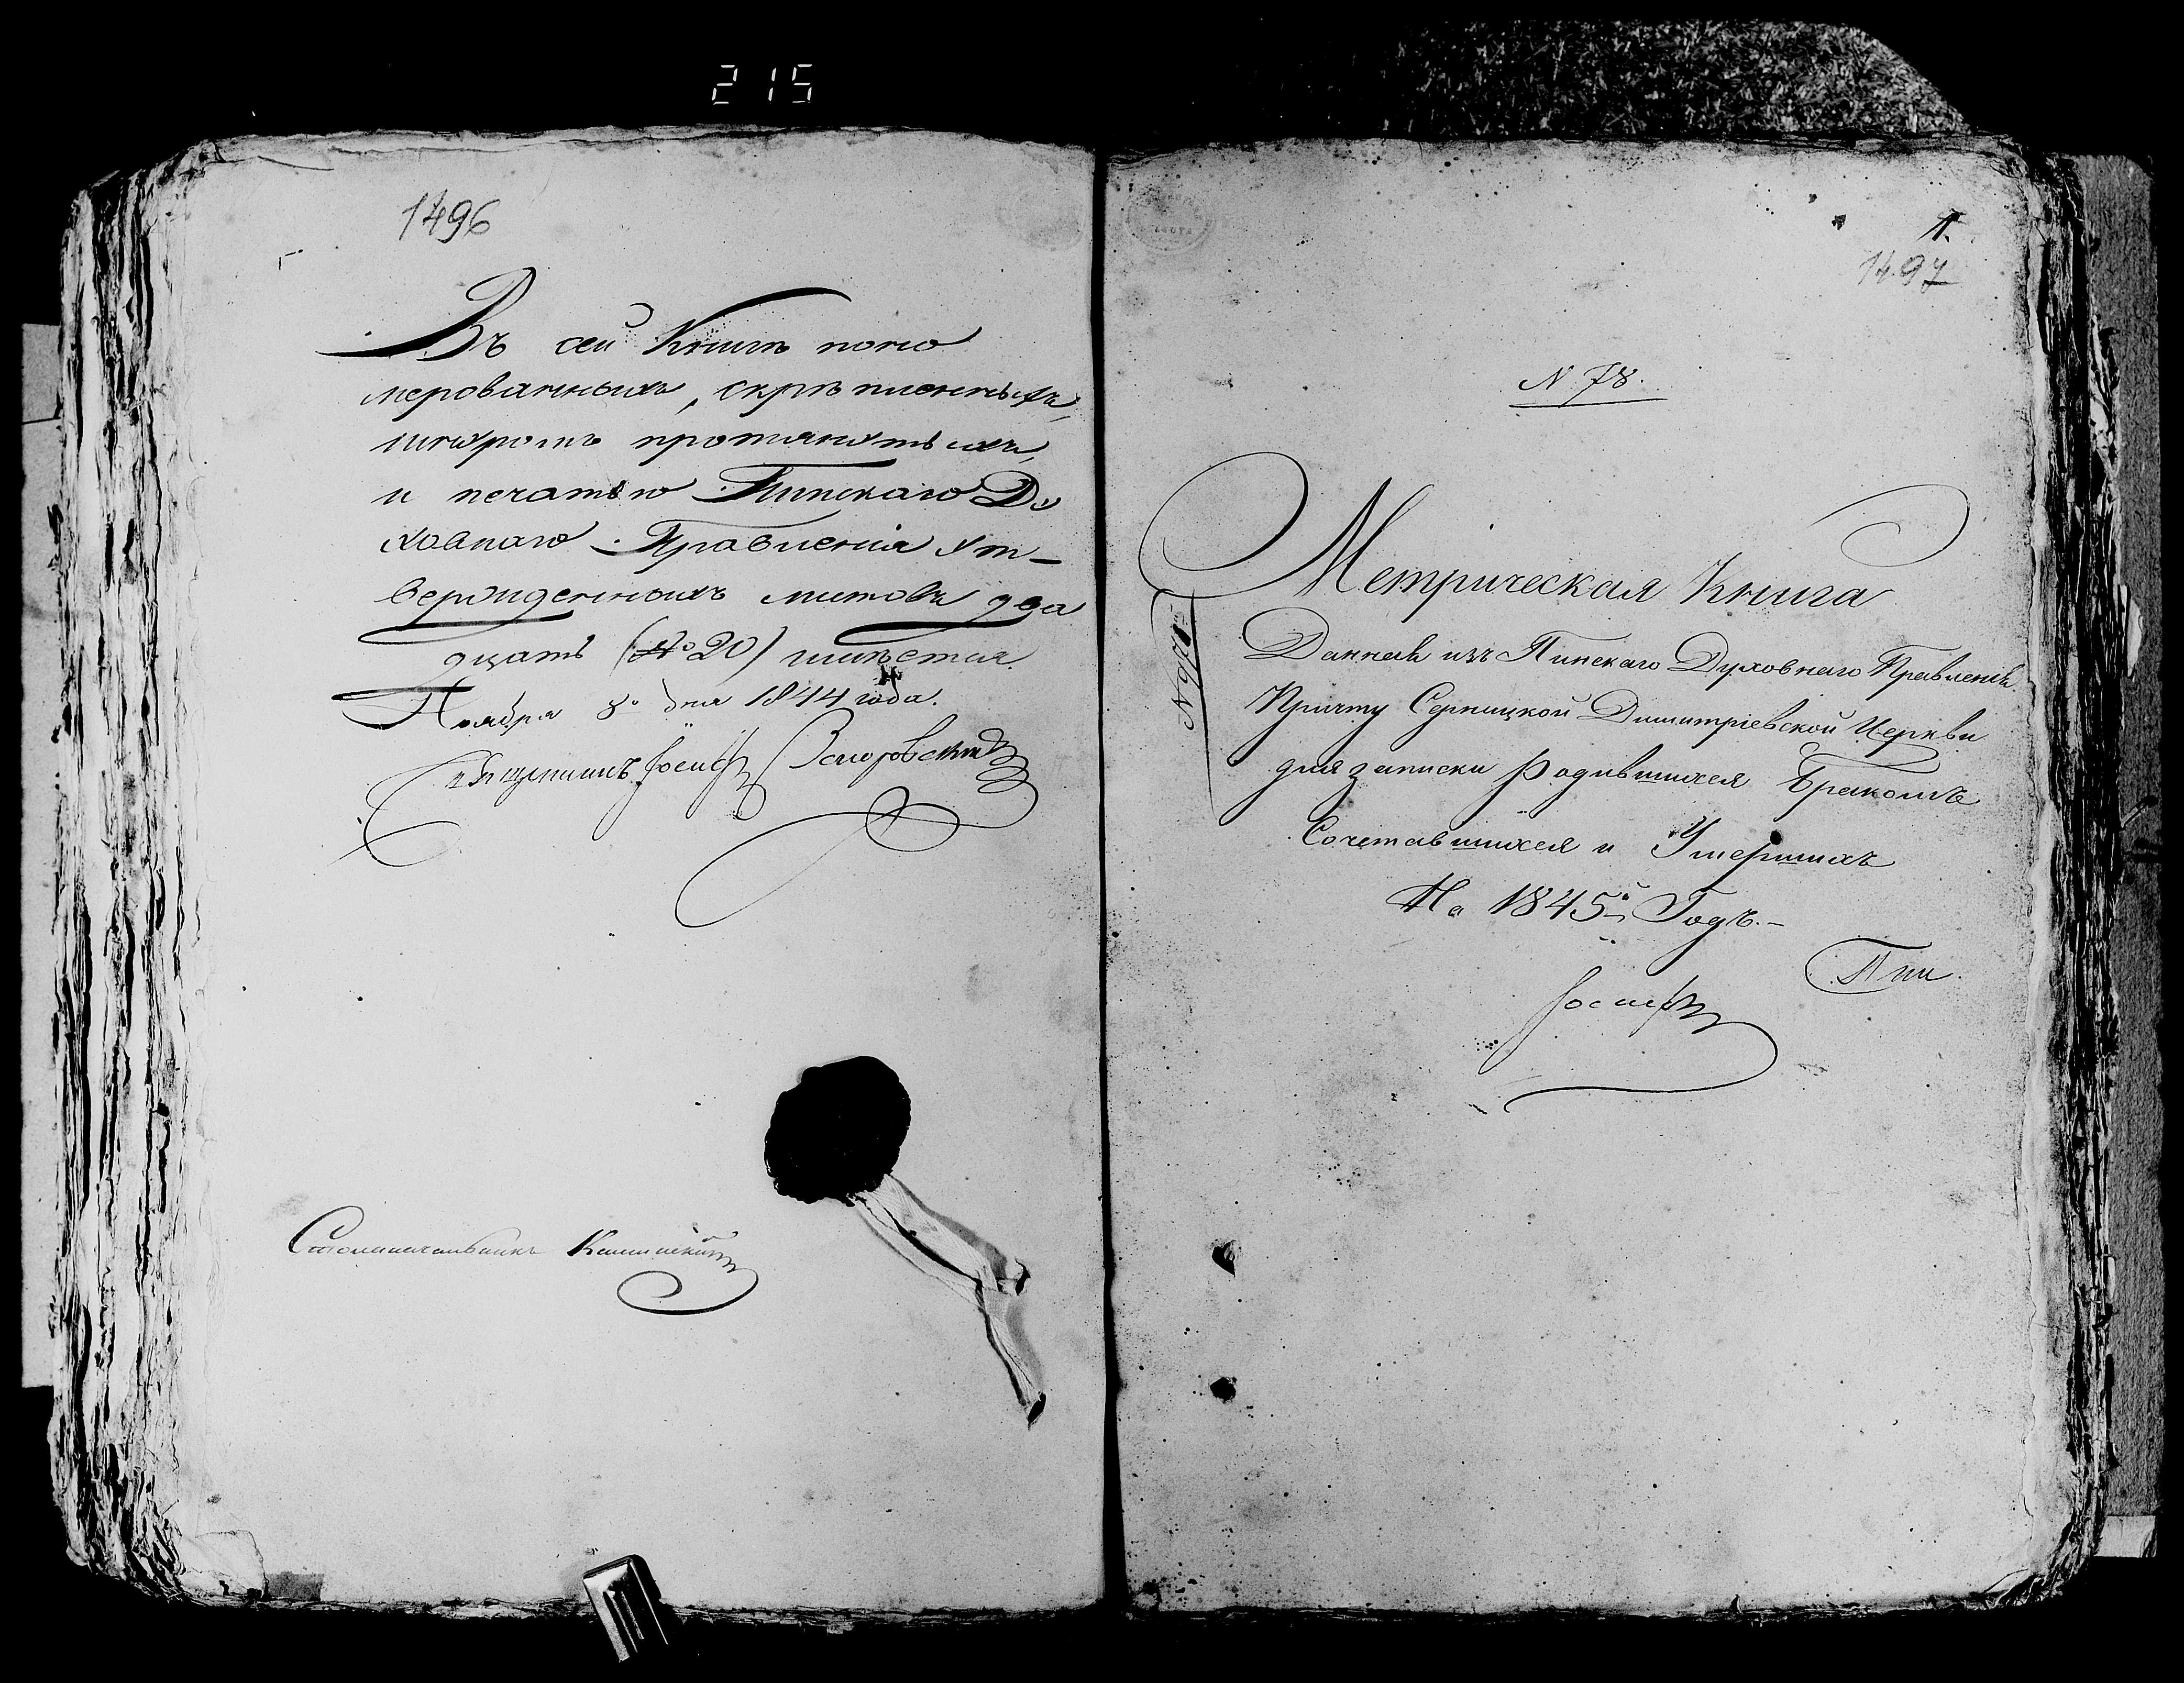 215
1496
Въ сей Книгѣ поно
мерованныхъ, скрѣпленныхъ,
шнуромъ протянутыхъ,
и печатью Пинскаго Ду
ховнаго Правленія ут-
вержденныхъ листовъ два
дцать (№ 20) имѣется.
Ноября 8го дня 1844 года.
Іосифъ
Столоначальникъ
1.
1497
N 78.
Метрическая Книга
Данная изъ Пинскаго Духовнаго Правленія
Причту Серницкой Димитріевской Церкви
для записки Родившихся Бракомъ
Сочетавшихся и Умершихъ
На 1845й Годъ.-
Пи
Іосифъ